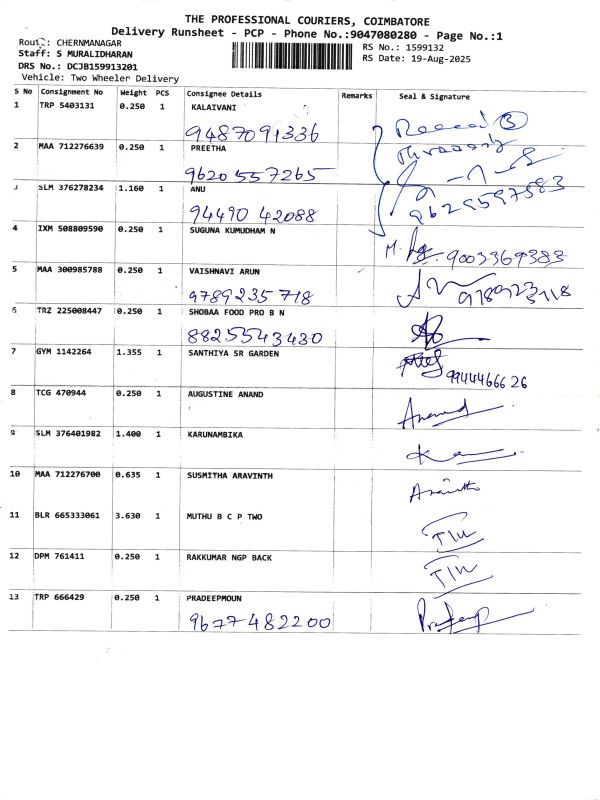 THE PROFESSIONAL COURIERS, COIMBATORE
Delivery Runsheet - PCP - Phone No.:9047080280 - Page No.:1
Route: CHERNMANAGAR
RS No.: 1599132
Staff: S MURALIDHARAN
RS Date: 19-Aug-2025
DRS No.: DCJB159913201
Vehicle: Two Wheeler Delivery
S No Consignment No Weight PCS Consignee Details Remarks Seal & Signature
1 TRP 5403131 0.250 1 KALAIVANI
9487091336
2 MAA 712276639 0.250 1 PREETHA
9620557265
3 SLM 376278234 1.160 1 ANU
94490 42088
9629597583
4 IXM 508809590 0.250 1 SUGUNA KUMUDHAM N
9003369383
5 MAA 300985788 0.250 1 VAISHNAVI ARUN
9789235718
6 TRZ 225008447 0.250 1 SHOBAA FOOD PRO B N
8825543430
7 GYM 1142264 1.355 1 SANTHIYA SR GARDEN
9944466626
8 TCG 470944 0.250 1 AUGUSTINE ANAND
Anand
9 SLM 376401982 1.400 1 KARUNAMBIKA
10 MAA 712276700 0.635 1 SUSMITHA ARAVINTH
Aravinth
11 BLR 665333061 3.630 1 MUTHU B C P TWO
12 DPM 761411 0.250 1 RAKKUMAR NGP BACK
13 TRP 666429 0.250 1 PRADEEPMOUN
9677482200